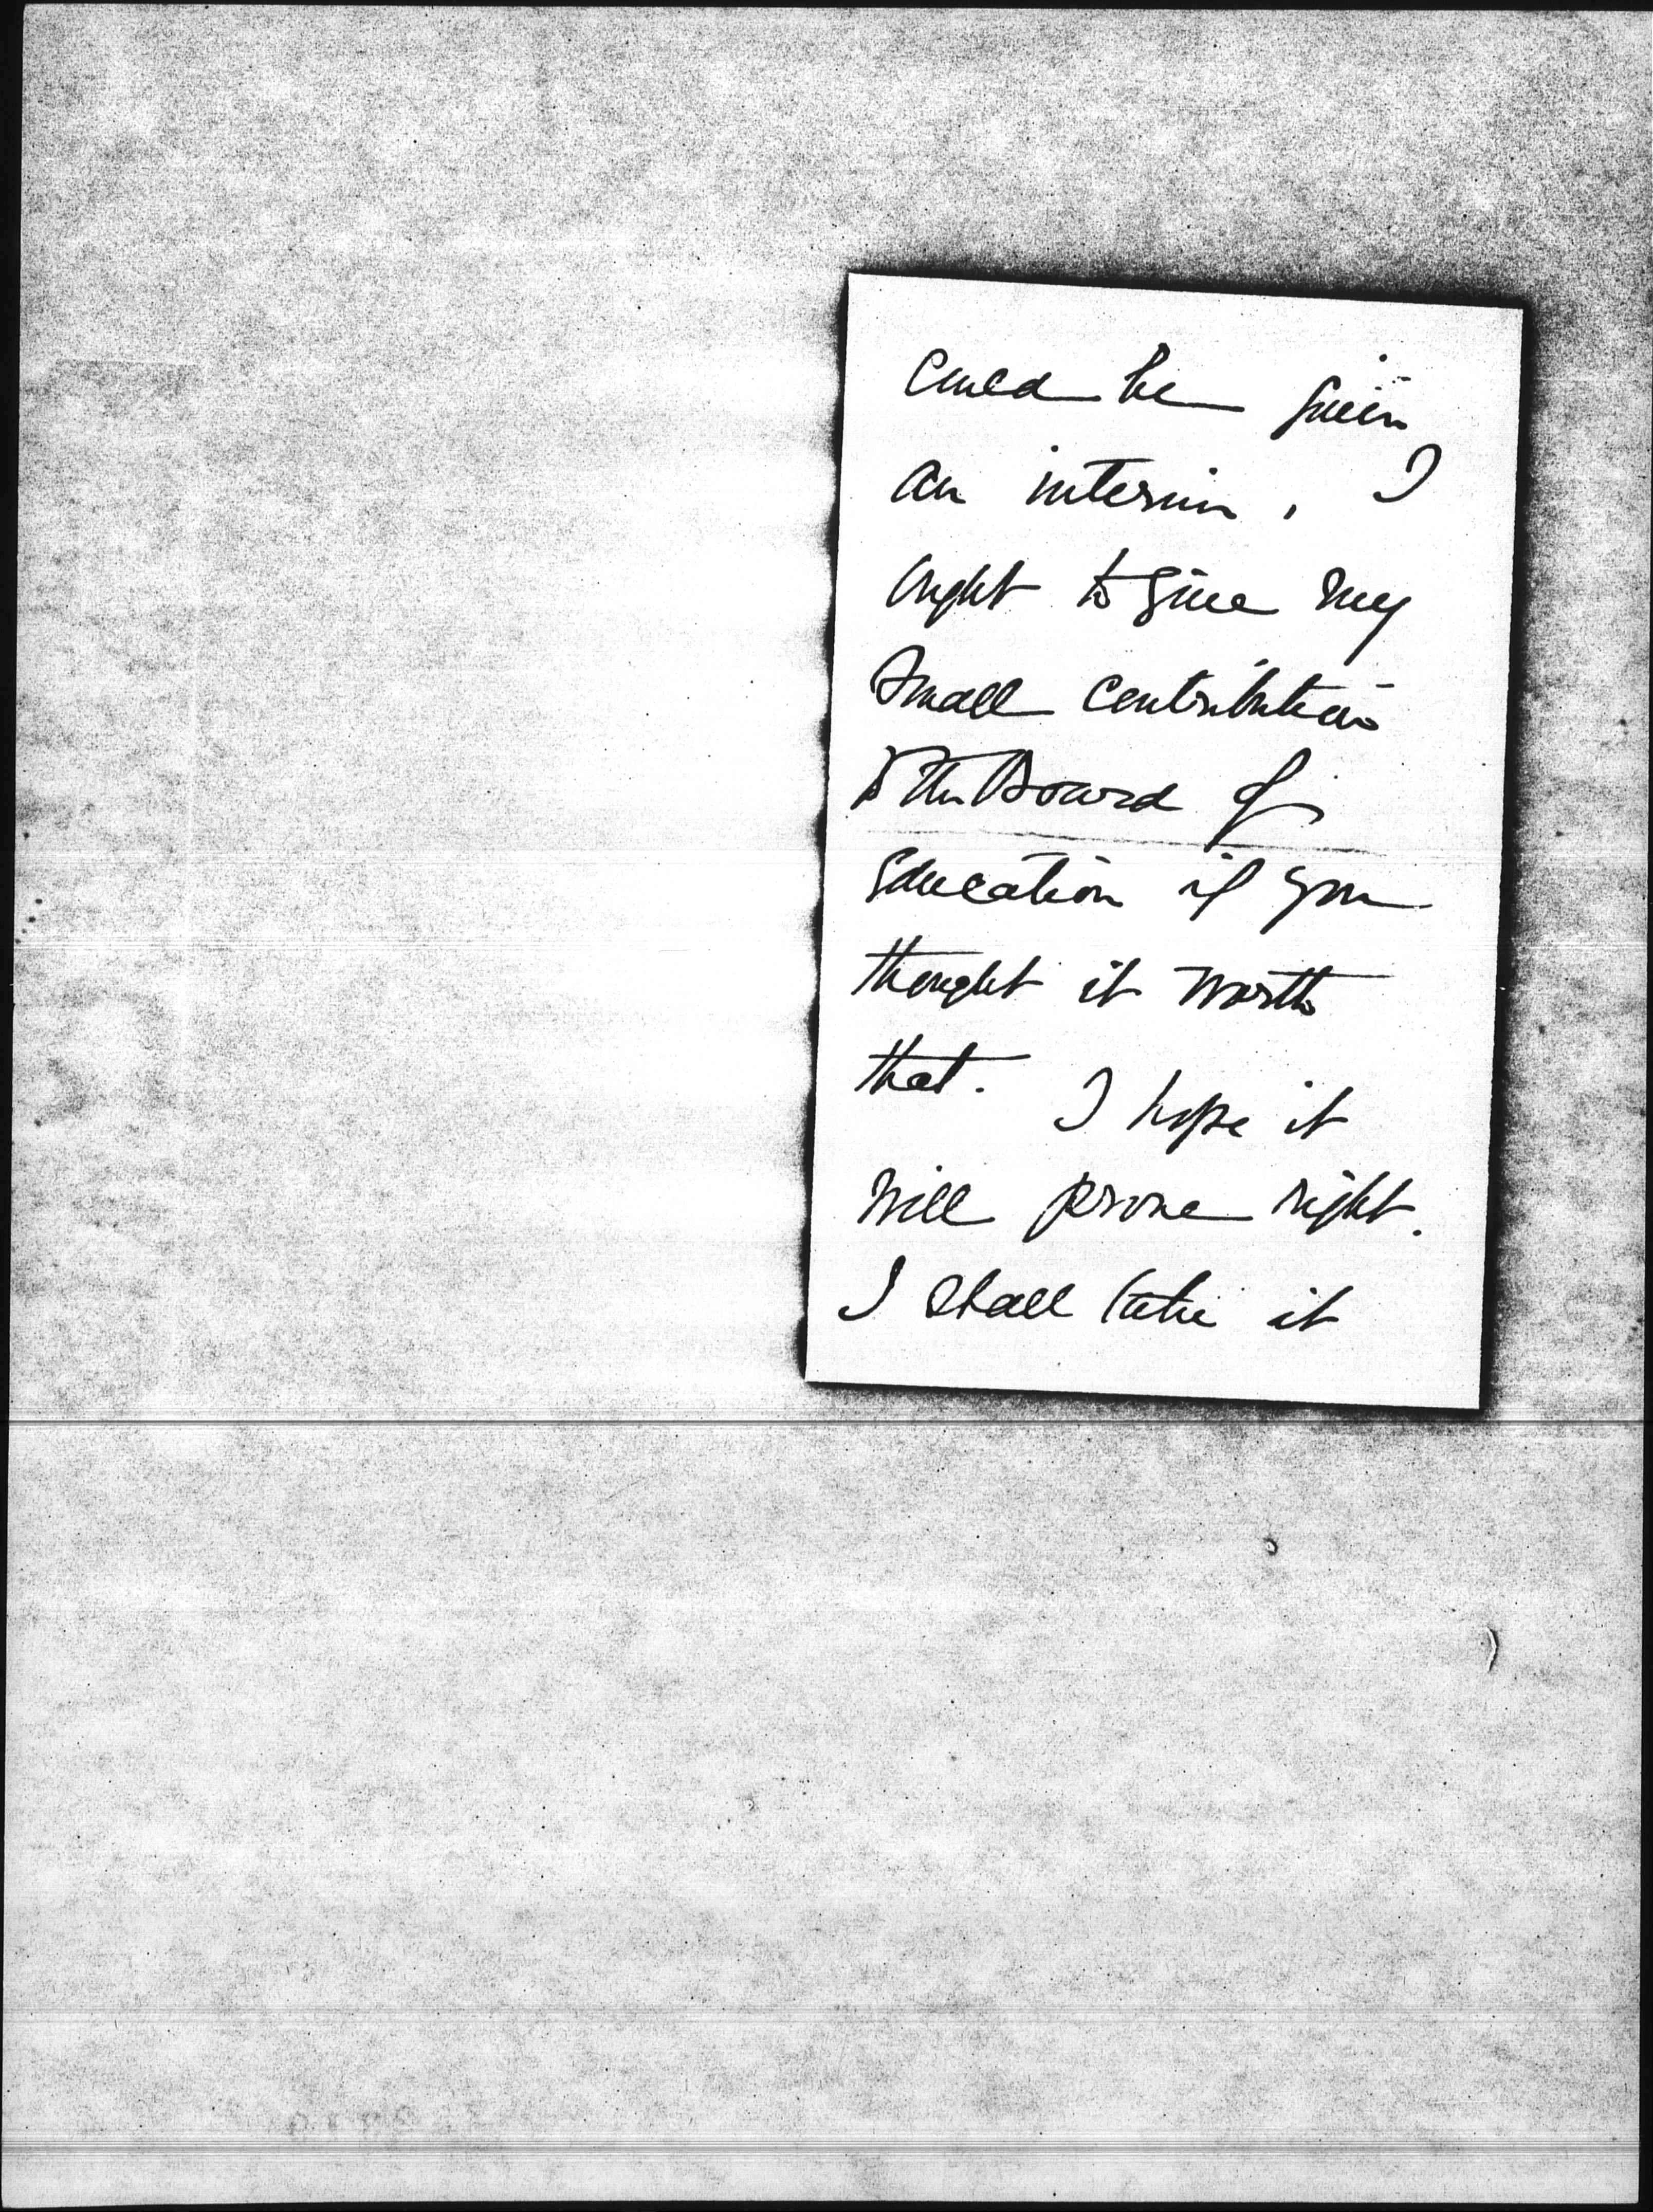 could be given
an interim, I
ought to give my
small contribution
to the Board of
Education if you
thought it worth
that. I hope it
will prove right.
I shall take it